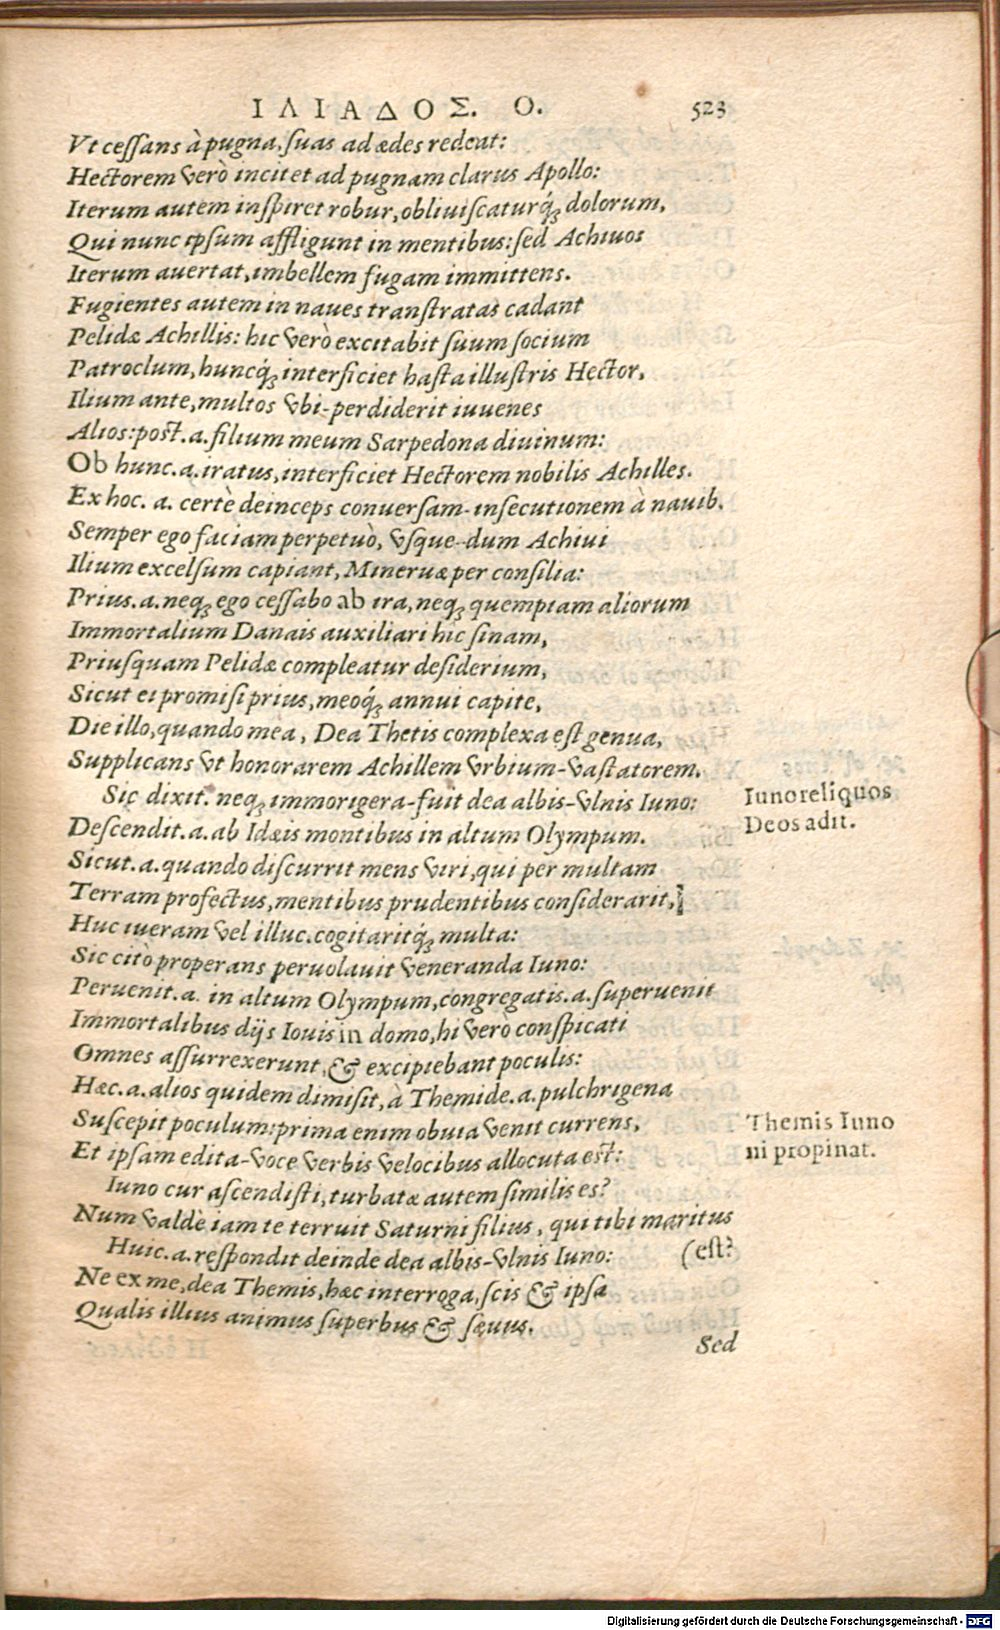 ΙΛΙΑΔΟΣ. Ο. 523
Vt cessans à pugna, suas ad ædes redeat:
Hectorem verò incitet ad pugnam clarus Apollo:
Iterum autem inspiret robur, obliuiscaturq́; dolorum,
Qui nunc ipsum affligunt in mentibus: sed Achiuos
Iterum auertat, imbellem fugam immittens.
Fugientes autem in naues transtratas cadant
Pelidæ Achillis: hic verò excitabit suum socium
Patroclum, huncq́; interficiet hasta illustris Hector,
Ilium ante, multos vbi-perdiderit iuuenes
Alios: post. a. filium meum Sarpedona diuinum:
Ob hunc. a. iratus, interficiet Hectorem nobilis Achilles.
Ex hoc. a. certè deinceps conuersam-insecutionem à nauib.
Semper ego faciam perpetuò, vsque-dum Achiui
Ilium excelsum capiant, Mineruæ per consilia:
Prius. a. neq; ego cessabo ab ira, neq; quempiam aliorum
Immortalium Danais auxiliari hic sinam,
Priusquam Pelidæ compleatur desiderium,
Sicut ei promisi prius, meoq́; annui capite,
Die illo, quando mea, Dea Thetis complexa est genua,
Supplicans vt honorarem Achillem vrbium-vastatorem.
Sic dixit. neq; immorigera-fuit dea albis-vlnis Iuno:
Iuno reliquos
Deos adit.
Descendit. a. ab Idæis montibus in altum Olympum.
Sicut. a. quando discurrit mens viri, qui per multam
Terram profectus, mentibus prudentibus considerarit,
Huc iueram vel illuc. cogitaritq́; multa:
Sic citò properans peruolauit veneranda Iuno:
Peruenit. a. in altum Olympum, congregatis. a. superuenit
Immortalibus dijs Iouis in domo, hi verò conspicati
Omnes assurrexerunt, & excipiebant poculis:
Hæc. a. alios quidem dimisit, à Themide. a. pulchrigena
Suscepit poculum: prima enim obuia venit currens,
Themis Iuno
ni propinat.
Et ipsam edita-voce verbis velocibus allocuta est:
Iuno cur ascendisti, turbatæ autem similis es?
Num valdè iam te terruit Saturni filius, qui tibi maritus
Huic. a. respondit deinde dea albis-vlnis Iuno: (est?
Ne ex me, dea Themis, hæc interroga, scis & ipsa
Qualis illius animus superbus & sæuus.
Sed
Digitalisierung gefördert durch die Deutsche Forschungsgemeinschaft - DFG